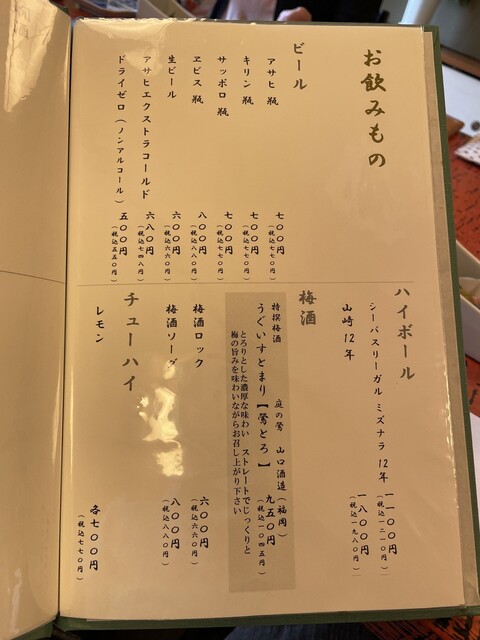 お飲みもの
ビール
アサヒ 瓶 七〇〇円
(税込七七〇円)
キリン 瓶 七〇〇円
(税込七七〇円)
サッポロ 瓶 七〇〇円
(税込七七〇円)
ヱビス 瓶 八〇〇円
(税込八八〇円)
生ビール 六〇〇円
(税込六六〇円)
アサヒエクストラコールド 六八〇円
(税込七四八円)
ドライゼロ(ノンアルコール) 五〇〇円
(税込五五〇円)
ハイボール
シーバスリーガル ミズナラ 12年 一一〇〇円
(税込一二一〇円)
山崎 12年 一八〇〇円
(税込一九八〇円)
梅酒
特撰梅酒 庭の鶯 山口酒造(福岡)
うぐいすとまり【鶯とろ】 九五〇円
(税込一〇四五円)
とろりとした濃厚な味わい ストレートでじっくりと
梅の旨みを味わいながらお召し上がり下さい
梅酒ロック 六〇〇円
(税込六六〇円)
梅酒ソーダ 八〇〇円
(税込八八〇円)
チューハイ
レモン 各七〇〇円
(税込七七〇円)